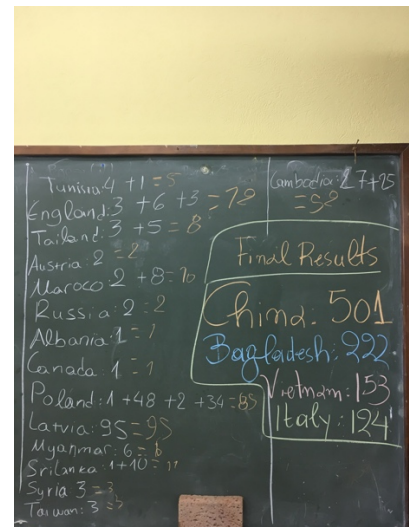 Tunisia: 4 + 1 = 5
England: 3 + 6 + 3 = 12
Tailand: 3 + 5 = 8
Austria: 2 = 2
Maroco: 2 + 8 = 10
Russia: 2 = 2
Albania: 1 = 1
Canada: 1 = 1
Poland: 1 + 48 + 2 + 34 = 85
Latvia: 95 = 95
Myanmar: 6 = 6
Srilanka: 1 + 10 = 11
Syria 3 = 3
Taiwan: 3 = 3
Cambodia: 27+25
= 52
Final Results
China: 501
Bagladesh: 222
Vietnam: 153
Italy: 124